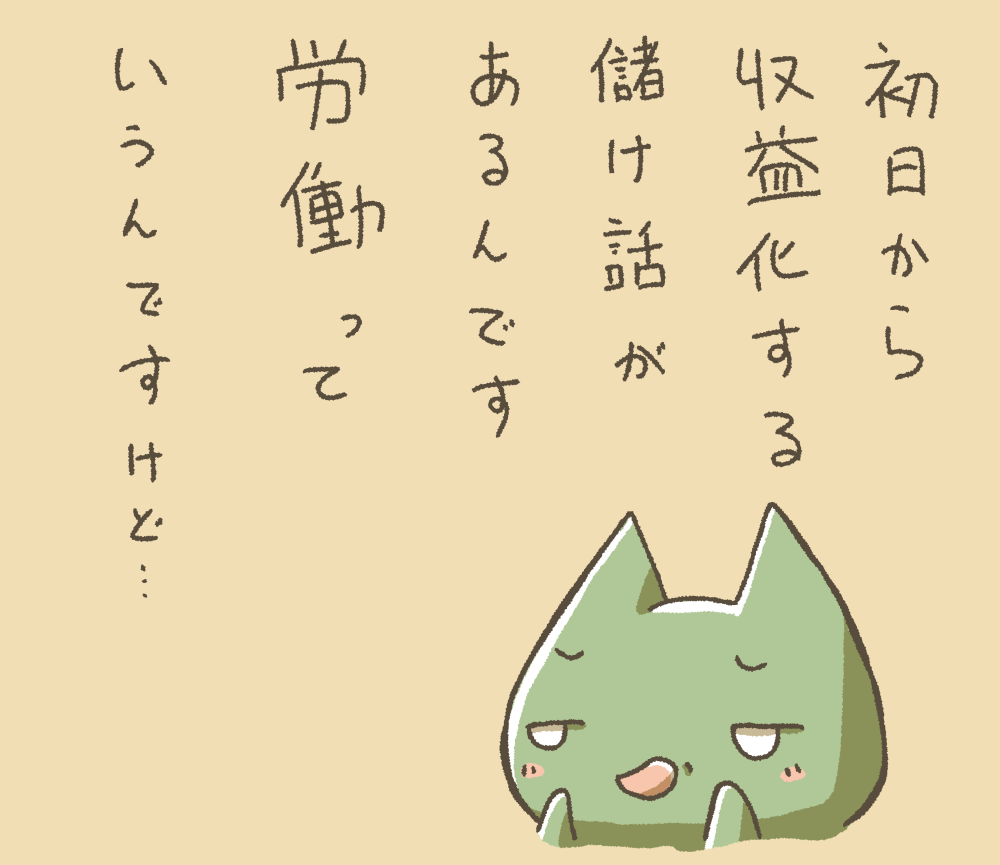 初日から
収益化する
儲け話が
あるんです
労働って
いうんですけど…